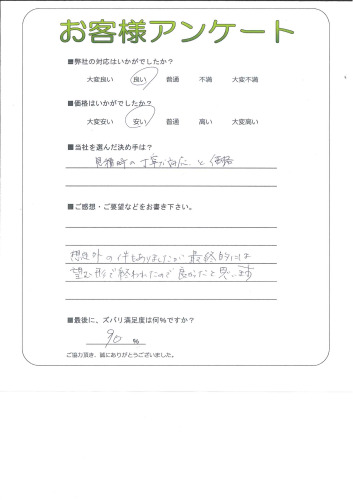 お客様アンケート
■弊社の対応はいかがでしたか?
大変良い 良い 普通 不満 大変不満
■価格はいかがでしたか?
大変安い 安い 普通 高い 大変高い
■当社を選んだ決め手は?
見積時の丁寧な対応と価格
■ご感想・ご要望などをお書き下さい。
想定外の件もありましたが最終的には
望む形で終われたので良かったと思います
■最後に、ズバリ満足度は何%ですか?
90 %
ご協力頂き、誠にありがとうございました。